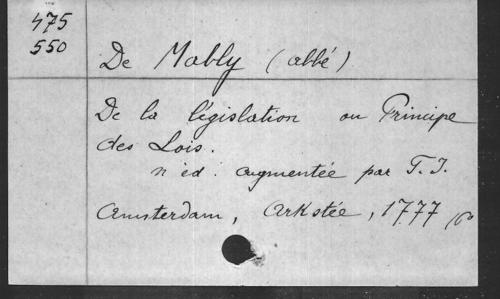 475
550
De Mably (abbé)
De la législation ou Principe
des Lois.
n. éd. augmentée par T. J.
Amsterdam, Arkstée, 1777